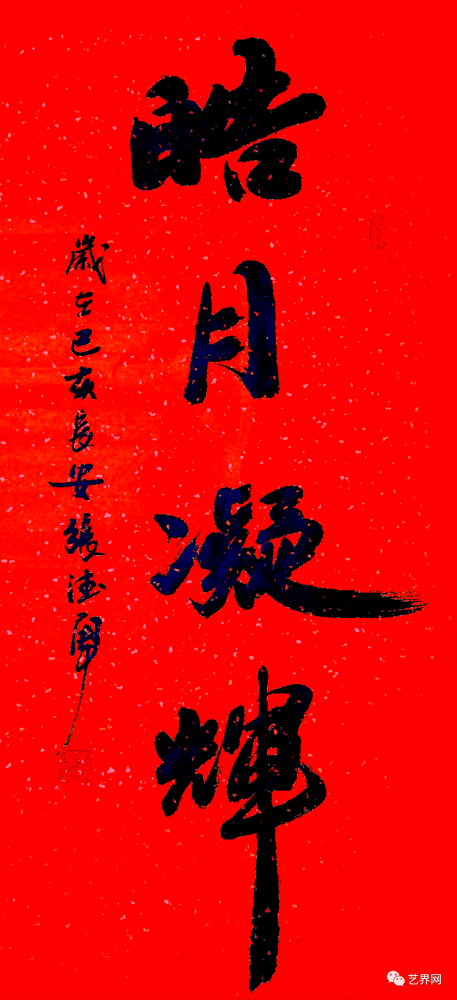 皓月凝輝
歲在己亥長安張德
艺界网